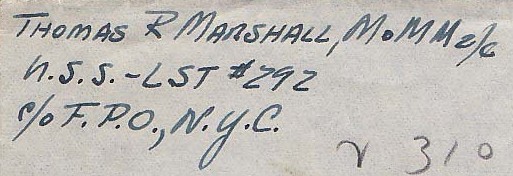 Thomas R Marshall, MoMM2/c
U.S.S.-LST #292
c/o F.P.O., N.Y.C.
V 310